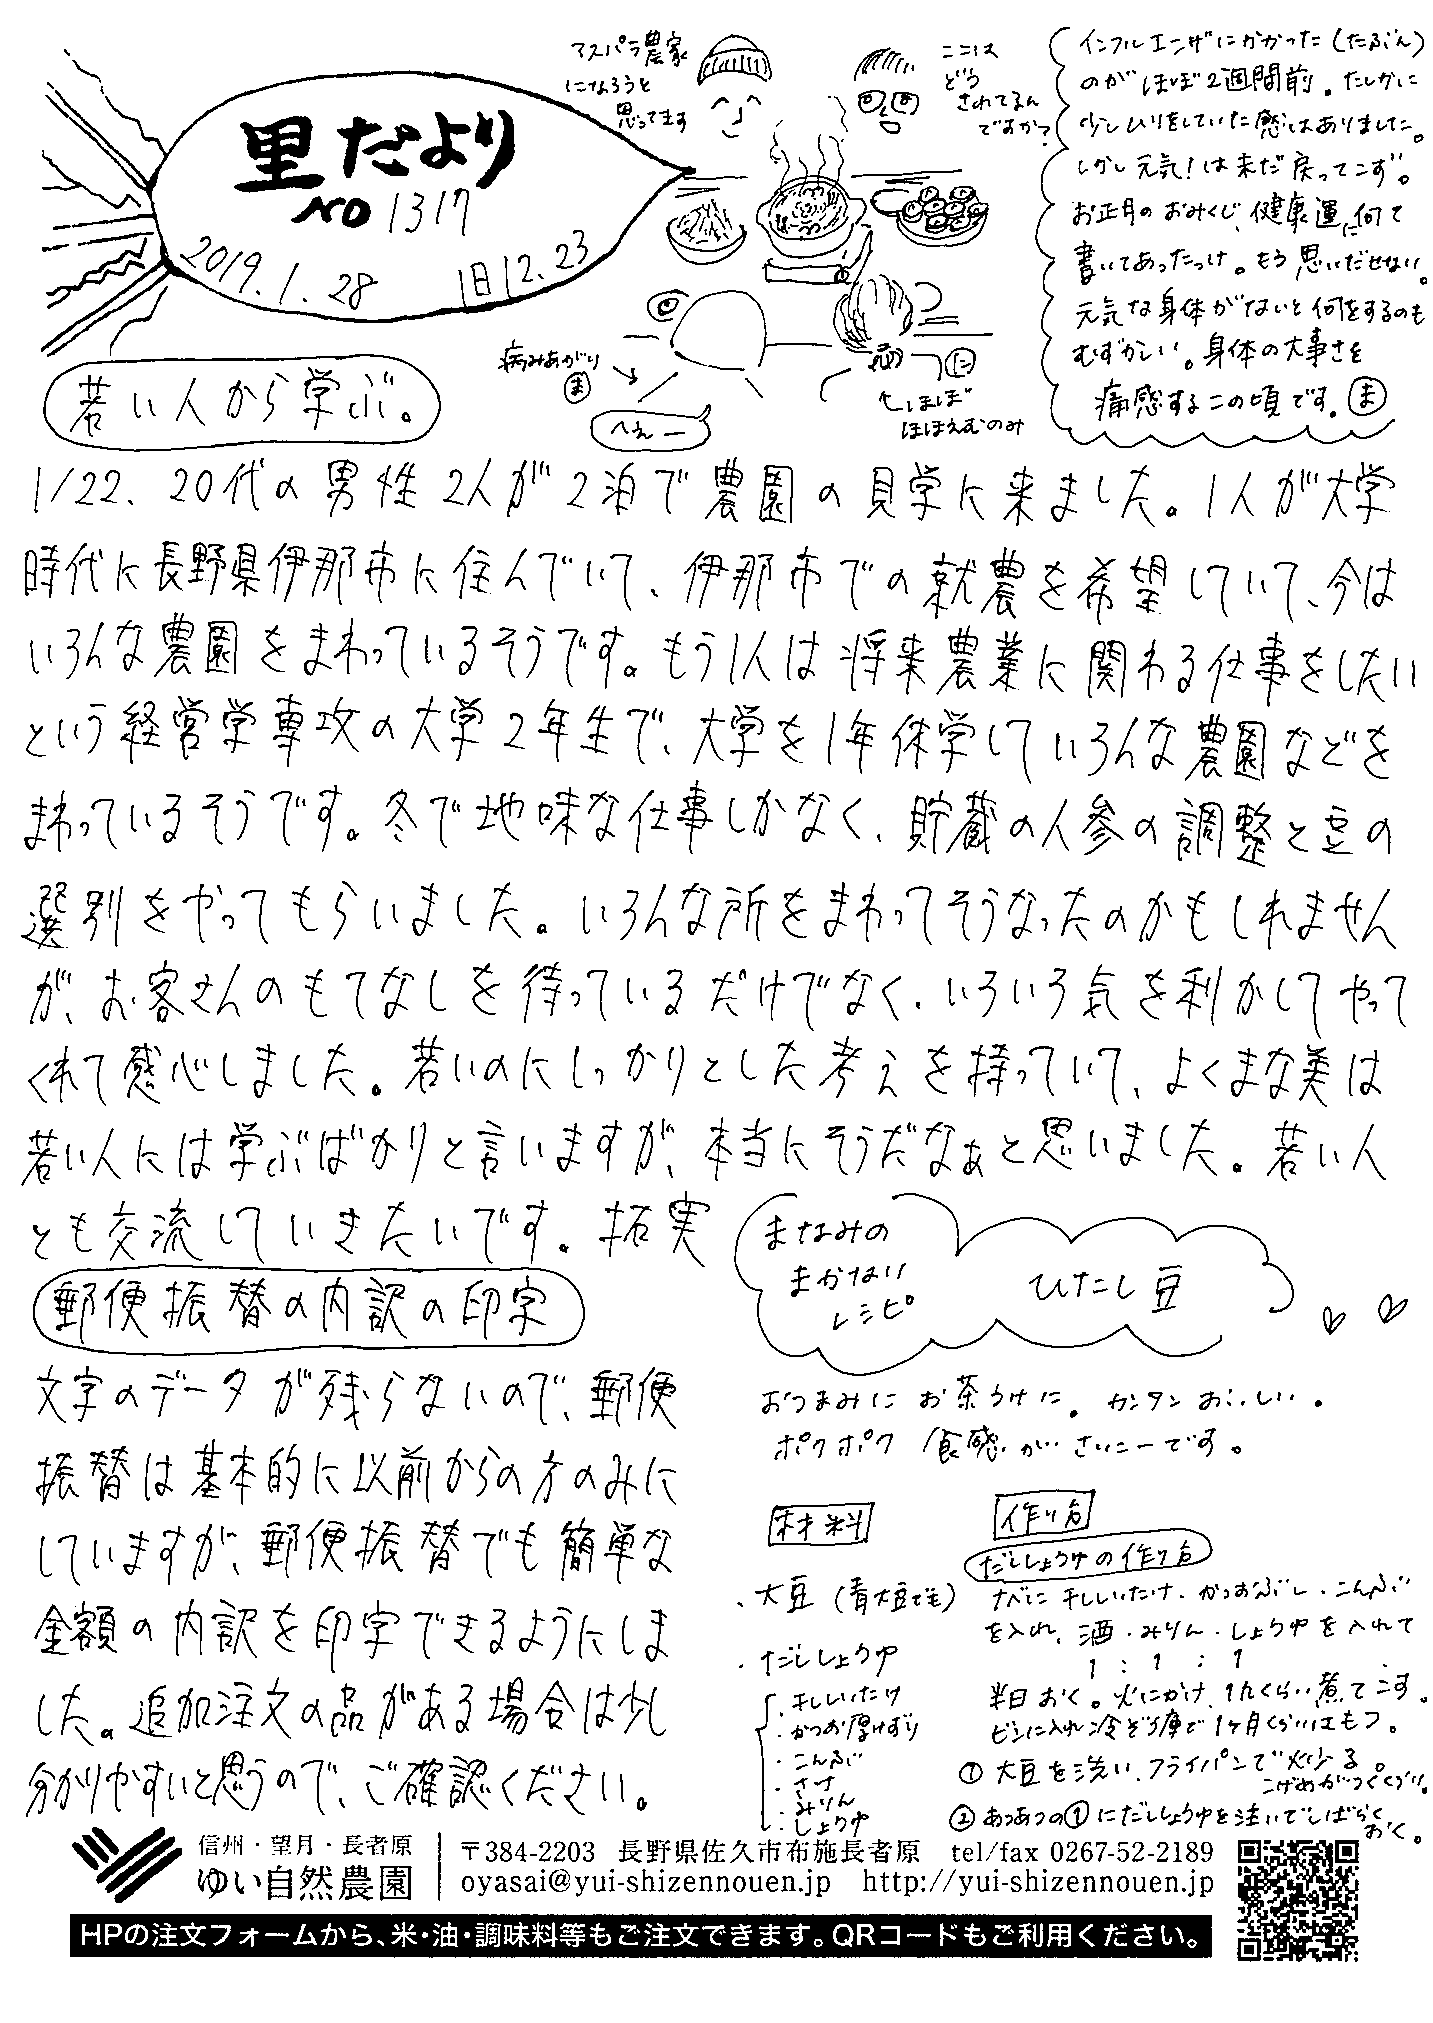 里だより
NO 1317
2019.1.28 旧12.23
アスパラ農家
になろうと
思ってます
ここは
どう
されてるん
ですか?
病みあがり
ま
へぇー
に
ほぼ
ほほえむのみ
インフルエンザにかかった(たぶん)
のがほぼ2週間前。たしかに
少しムリをしていた感はありました。
しかし元気!は未だ戻ってこず。
お正月のおみくじ、健康運に何て
書いてあったっけ。もう思いだせない。
元気な身体がないと何をするのも
むずかしい。身体の大事さを
痛感するこの頃です。ま
若い人から学ぶ。
1/22、20代の男性2人が2泊で農園の見学に来ました。1人が大学
時代に長野県伊那市に住んでいて、伊那市での就農を希望していて、今は
いろんな農園をまわっているそうです。もう1人は将来農業に関わる仕事をしたい
という経営学専攻の大学2年生で、大学を1年休学していろんな農園などを
まわっているそうです。冬で地味な仕事しかなく、貯蔵の人参の調整と豆の
選別をやってもらいました。いろんな所をまわってそうなったのかもしれません
が、お客さんのもてなしを待っているだけでなく、いろいろ気を利かしてやって
くれて感心しました。若いのにしっかりとした考えを持っていて、よくまな美は
若い人には学ぶばかりと言いますが、本当にそうだなぁと思いました。若い人
とも交流していきたいです。拓実
郵便振替の内訳の印字
文字のデータが残らないので、郵便
振替は基本的に以前からの方のみに
していますが、郵便振替でも簡単な
金額の内訳を印字できるようにしま
した。追加注文の品がある場合は少し
分かりやすいと思うので、ご確認ください。
まなみの
まかない
レシピ
ひたし豆
おつまみに お茶うけに。カンタンおいしい。
ポクポク食感がさいこーです。
材料
・大豆(青大豆でも)
・だししょうゆ
・干ししいたけ
・かつお厚けずり
・こんぶ
・さけ
・みりん
・しょうゆ
作り方
だししょうゆの作り方
ナベに干ししいたけ・かつおぶし・こんぶ
を入れ、酒・みりん・しょうゆを入れて
1:1:1
半日おく。火にかけ、1hくらい煮てこす。
ビンに入れ冷ぞう庫で1ヶ月くらいはもつ。
① 大豆を洗い、フライパンで炒る。
こげめがつくくらい。
② あつあつの①にだししょうゆを注いでしばらく
おく。
信州・望月・長者原
ゆい自然農園
〒384-2203 長野県佐久市布施長者原 tel/fax 0267-52-2189
oyasai@yui-shizennouen.jp http://yui-shizennouen.jp
HPの注文フォームから、米・油・調味料等もご注文できます。QRコードもご利用ください。